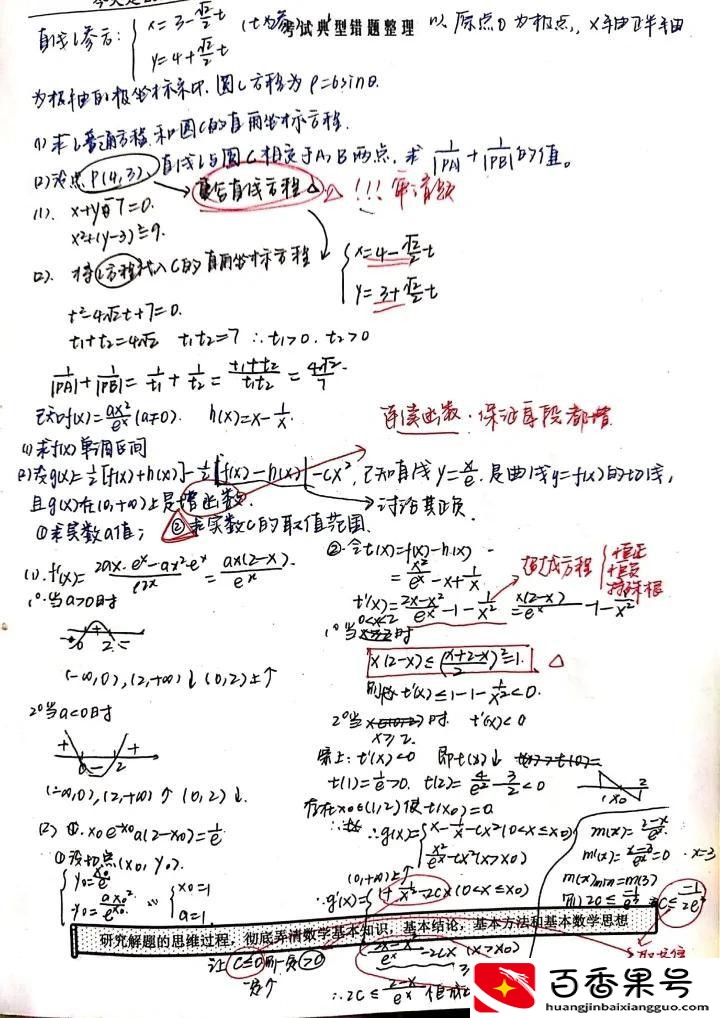 考试典型错题整理
直线l参方: { x=3-√2/2 t (t为参 以原点O为极点, x轴正半轴
y=4+√2/2 t
为极轴的极坐标系中, 圆C方程为 ρ=6sinθ.
(1) 求l普通方程和圆C的直角坐标方程.
(2) 设点P(4,3), 直线l与圆C相交于A,B两点, 求 1/|PA| + 1/|PB| 的值。
重合直线方程 △ △ !!! 审清题
(1). x+y-7=0.
x²+(y-3)²=9.
(2). 将l方程代入C的直角坐标方程
{ x=4-√2/2 t
y=3+√2/2 t
t²-4√2t+7=0.
t1+t2=4√2 t1t2=7 ∴t1>0. t2>0
1/|PA| + 1/|PB| = 1/t1 + 1/t2 = (t1+t2)/(t1t2) = 4√2/7.
已知f(x)=ax²/e^x (a≠0). h(x)=x-1/x.
连续函数. 保证每段都增
(1) 求f(x)单调区间
(2) 设g(x)=½[f(x)+h(x)]-½|f(x)-h(x)|-cx², 已知直线 y=x/e 是曲线y=f(x)的切线,
且g(x)在(0,+∞)上是增函数. 讨论其正负.
①求实数a值; ②求实数c的取值范围.
(1). f'(x)= (2ax·e^x-ax²·e^x)/e^2x = ax(2-x)/e^x.
1° 当a>0时
- 0 + 2 -
(-∞,0),(2,+∞)↓ (0,2)上↑
2° 当a<0时
+ 0 - 2 +
(-∞,0),(2,+∞)↑ (0,2)↓.
(2) ①. x0e^-x0 a(2-x0)=1/e
①设切点(x0, y0).
{ y0=x0/e
y0=ax0²/e^x0 ∴ { x0=1
a=1.
②. 令t(x)=f(x)-h(x)
= x²/e^x -x+1/x
超越方程 { 恒正
恒负
特殊根
t'(x)=(2x-x²)/e^x -1-1/x² = x(2-x)/e^x -1-1/x²
1° 当0<x<2时
x(2-x)≤((x+2-x)/2)²=1. △
t'(x)≤1-1-1/x²<0.
2° 当x≥2时, t'(x)<0
综上: t'(x)<0 即t(x)↓
t(1)=1/e>0. t(2)=4/e²-3/2<0
1 x0 2
存在x0∈(1,2)使t(x0)=0
∴g(x)= { x-1/x-cx² (0<x≤x0)
x²/e^x-cx² (x>x0)
(0,+∞)上↑
∴g'(x)= { 1+1/x²-2cx (0<x≤x0)
(2x-x²)/e^x-2cx (x>x0)
m(x)=(2-x)/e^x.
m'(x)=(x-3)/e^x=0 x=3
m(x)min=m(3)
则2c≤-1/e³ c≤-1/2e³
研究解题的思维过程, 彻底弄清数学基本知识, 基本结论, 基本方法和基本数学思想
c≤0
∴2c≤(2-x)/e^x
百香果号
huangjinbaixiangguo.com